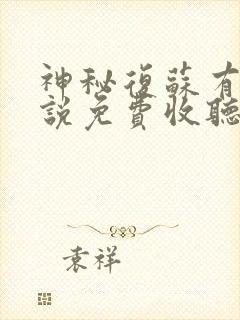 神秘復蘇有
說免費收聽
袁祥